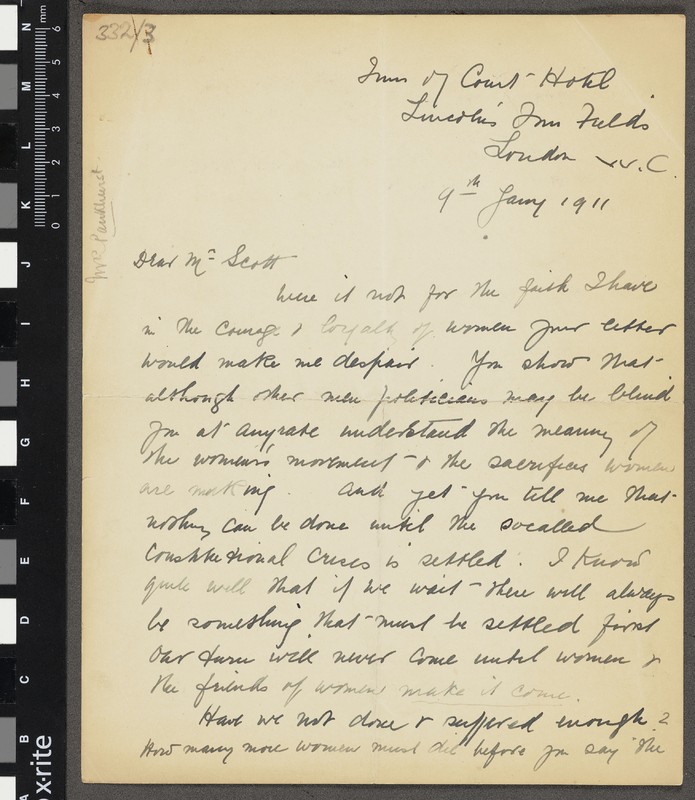 332/3
Inns of Court Hotel
Lincoln's Inn Fields
London W.C.
9th Jany 1911
Mrs Pankhurst
Dear Mr Scott
Were it not for the faith I have
in the courage & loyalty of women your letter
would make me despair. You show that
although other men politicians may be blind
you at anyrate understand the meaning of
the women's movement & the sacrifices women
are making. And yet you tell me that
nothing can be done until the socalled
Constitutional Crisis is settled. I know
quite well that if we wait there will always
be something that must be settled first
Our turn will never come until women &
the friends of women make it come.
Have we not done & suffered enough?
How many more women must die before you say "the
mm
0 1 2 3 4 5 6
N
M
L
K
J
I
H
G
F
E
D
C
B
A
x-rite